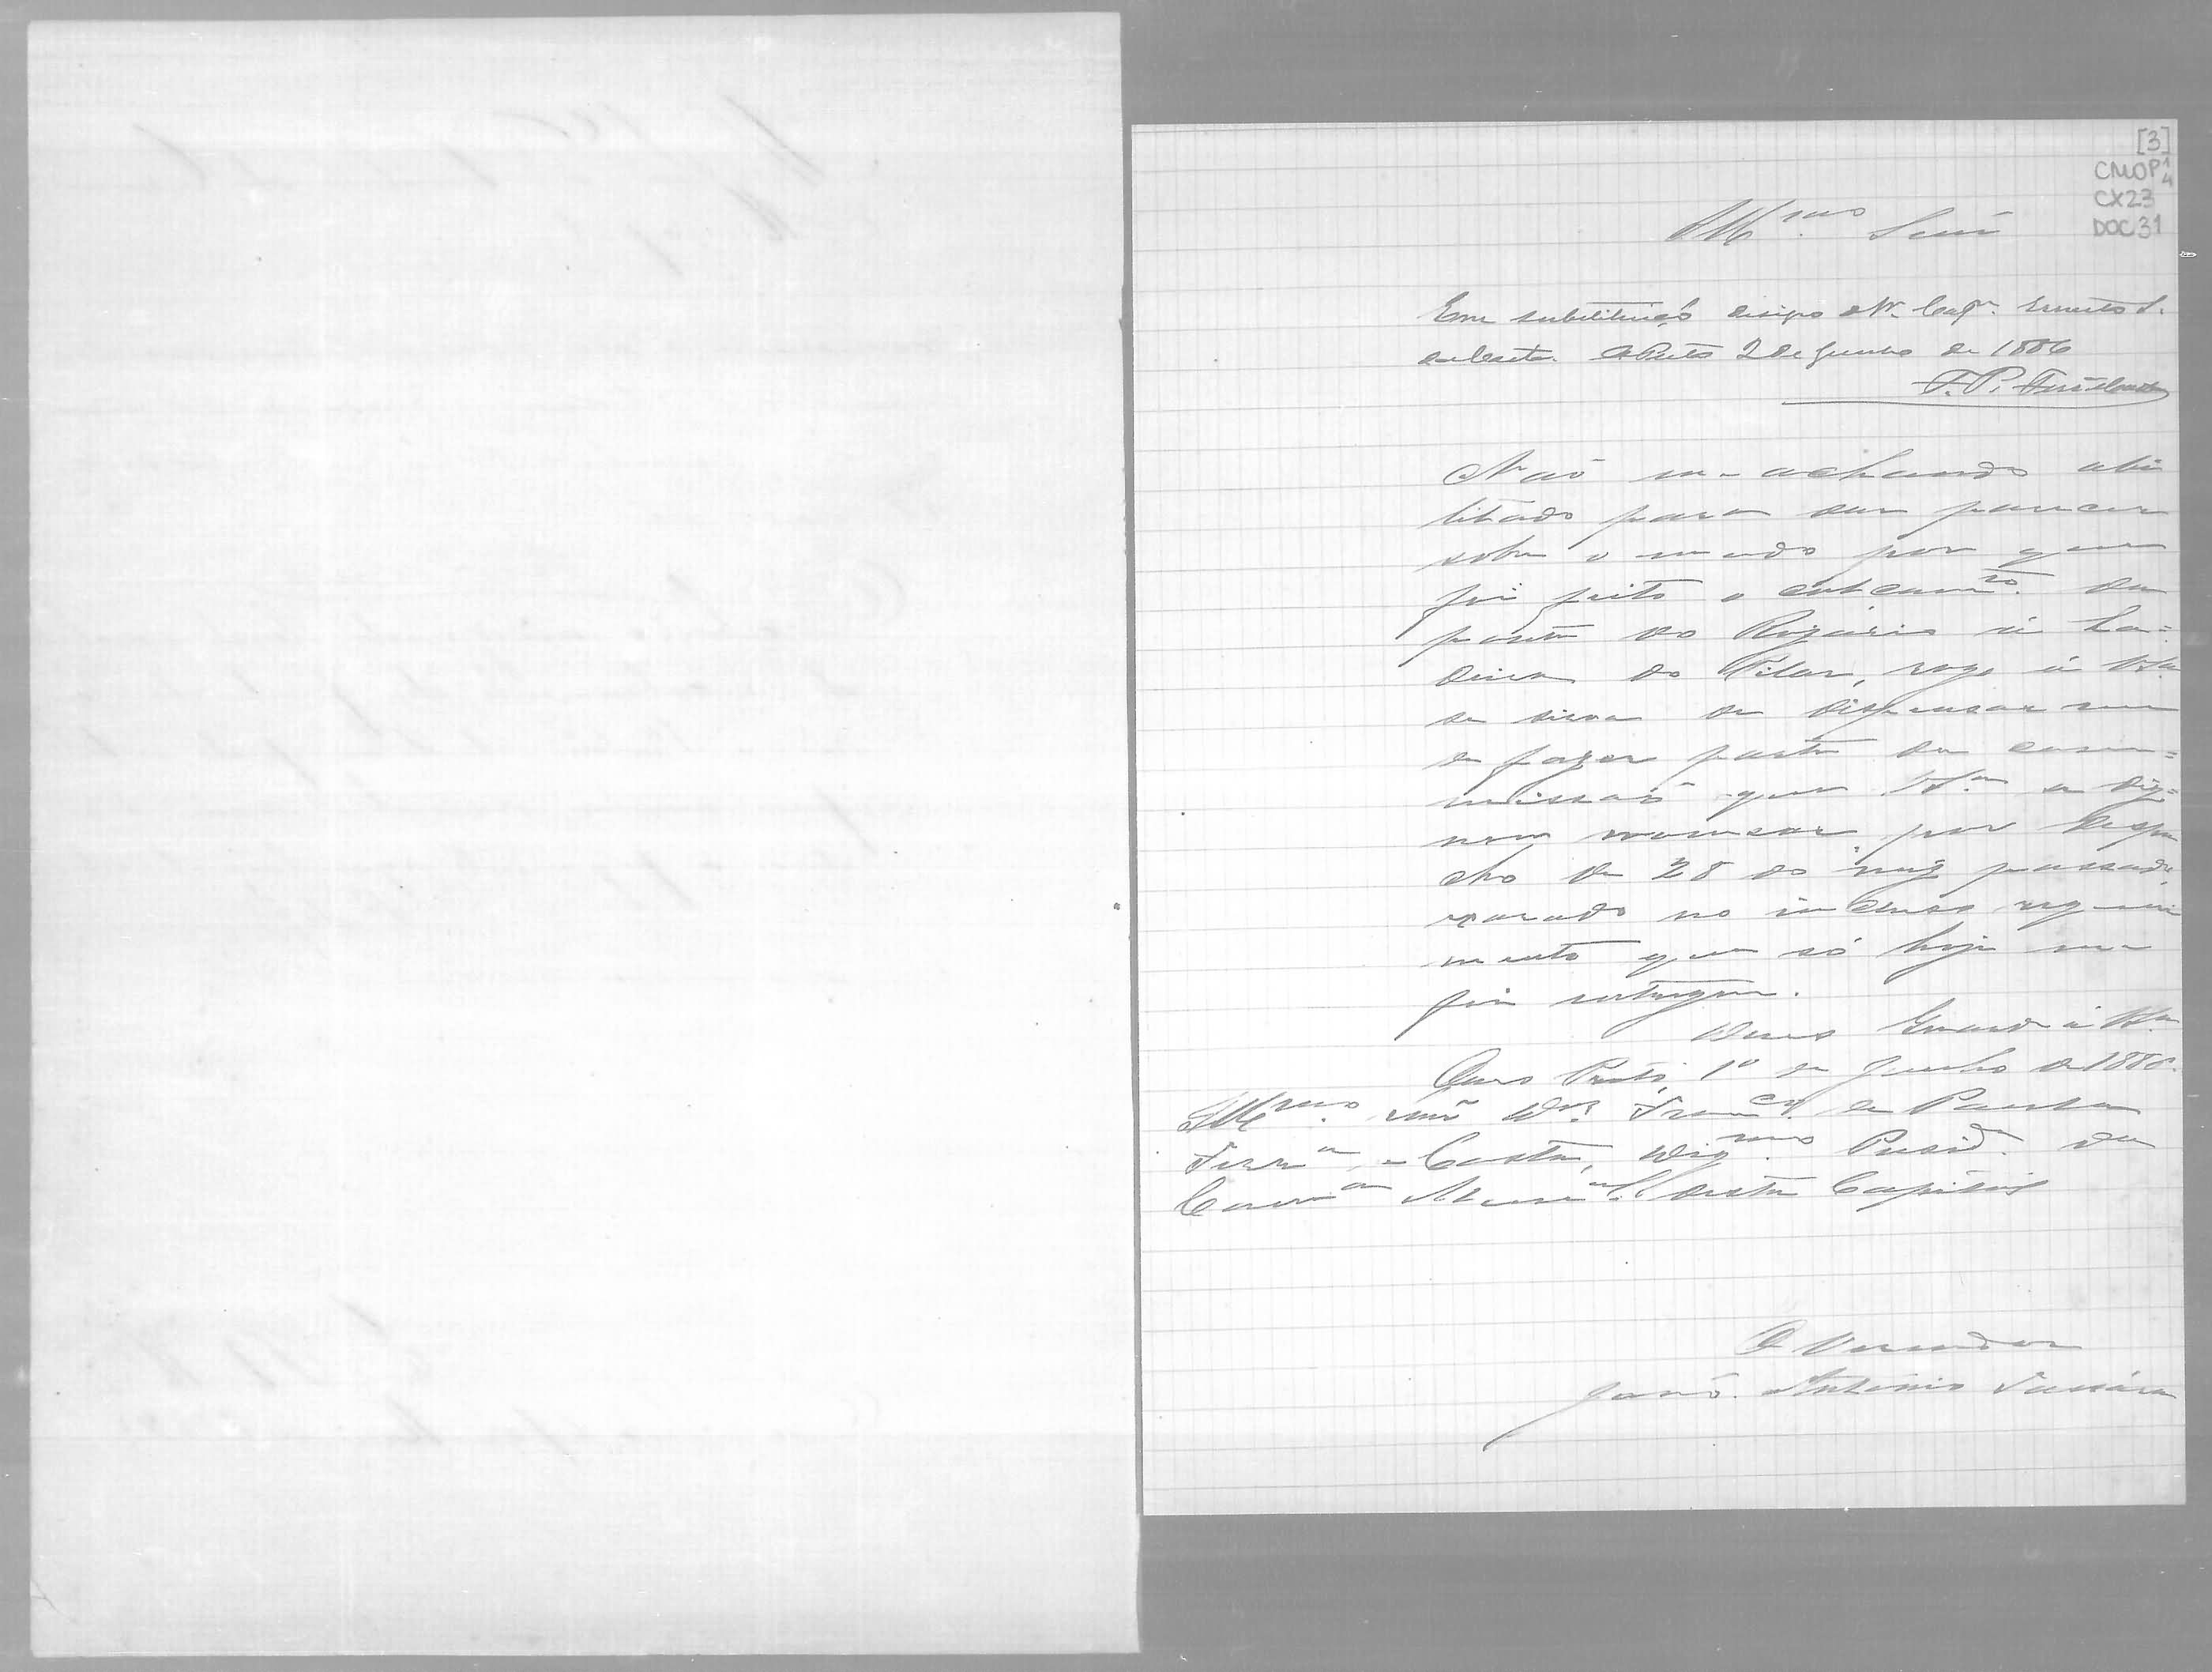 [3]
CMOP 1/4
CX23
DOC31
Ill.mo Senr.
Em substituição designo o Sr. Cap.m Ernesto
O Preto 2 de Junho de 1886
F. P.
Não me achando abi
litado para dar parecer
sobre o modo por que
foi feito o encanam.to da
ponte do Rozario á La=
deira do Pilar, rogo á V.Sa.
se sirva de dispensar me
de fazer parte da com=
missaõ que V.Sa. se dig=
nou nomear por despa
cho de 28 do mez passado,
exarado no incluso requeri
mento que só hoje me
foi entregue.
Deos Guarde á V.Sa.
Ouro Preto, 1º de Junho de 1886.
Ill.mo Snr. Dr. Fran.co de Paula
Ferr.a e Costa, Dig.mo Presid.e da
Camr.a Mun.al desta Capital
O Vereador
Antonio